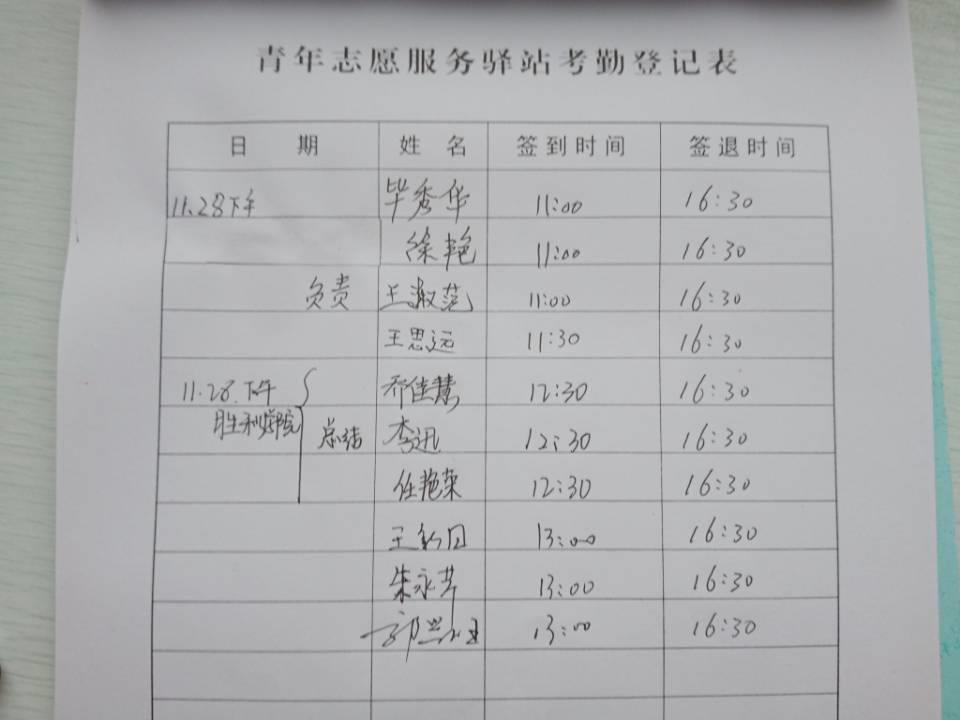 青年志愿服务驿站考勤登记表
日 期 姓 名 签到时间 签退时间
11.28下午 毕秀华 11:00 16:30
徐艳 11:00 16:30
负责 王淑范 11:00 16:30
王思远 11:30 16:30
11.28.下午 乔佳慧 12:30 16:30
胜利学院 总结 李迅 12:30 16:30
任艳荣 12:30 16:30
王新日 13:00 16:30
朱永芹 13:00 16:30
郭 13:00 16:30